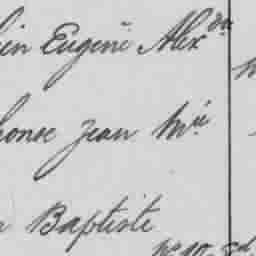 ien Eugène Alex dre
honse Jean Mie
Baptiste